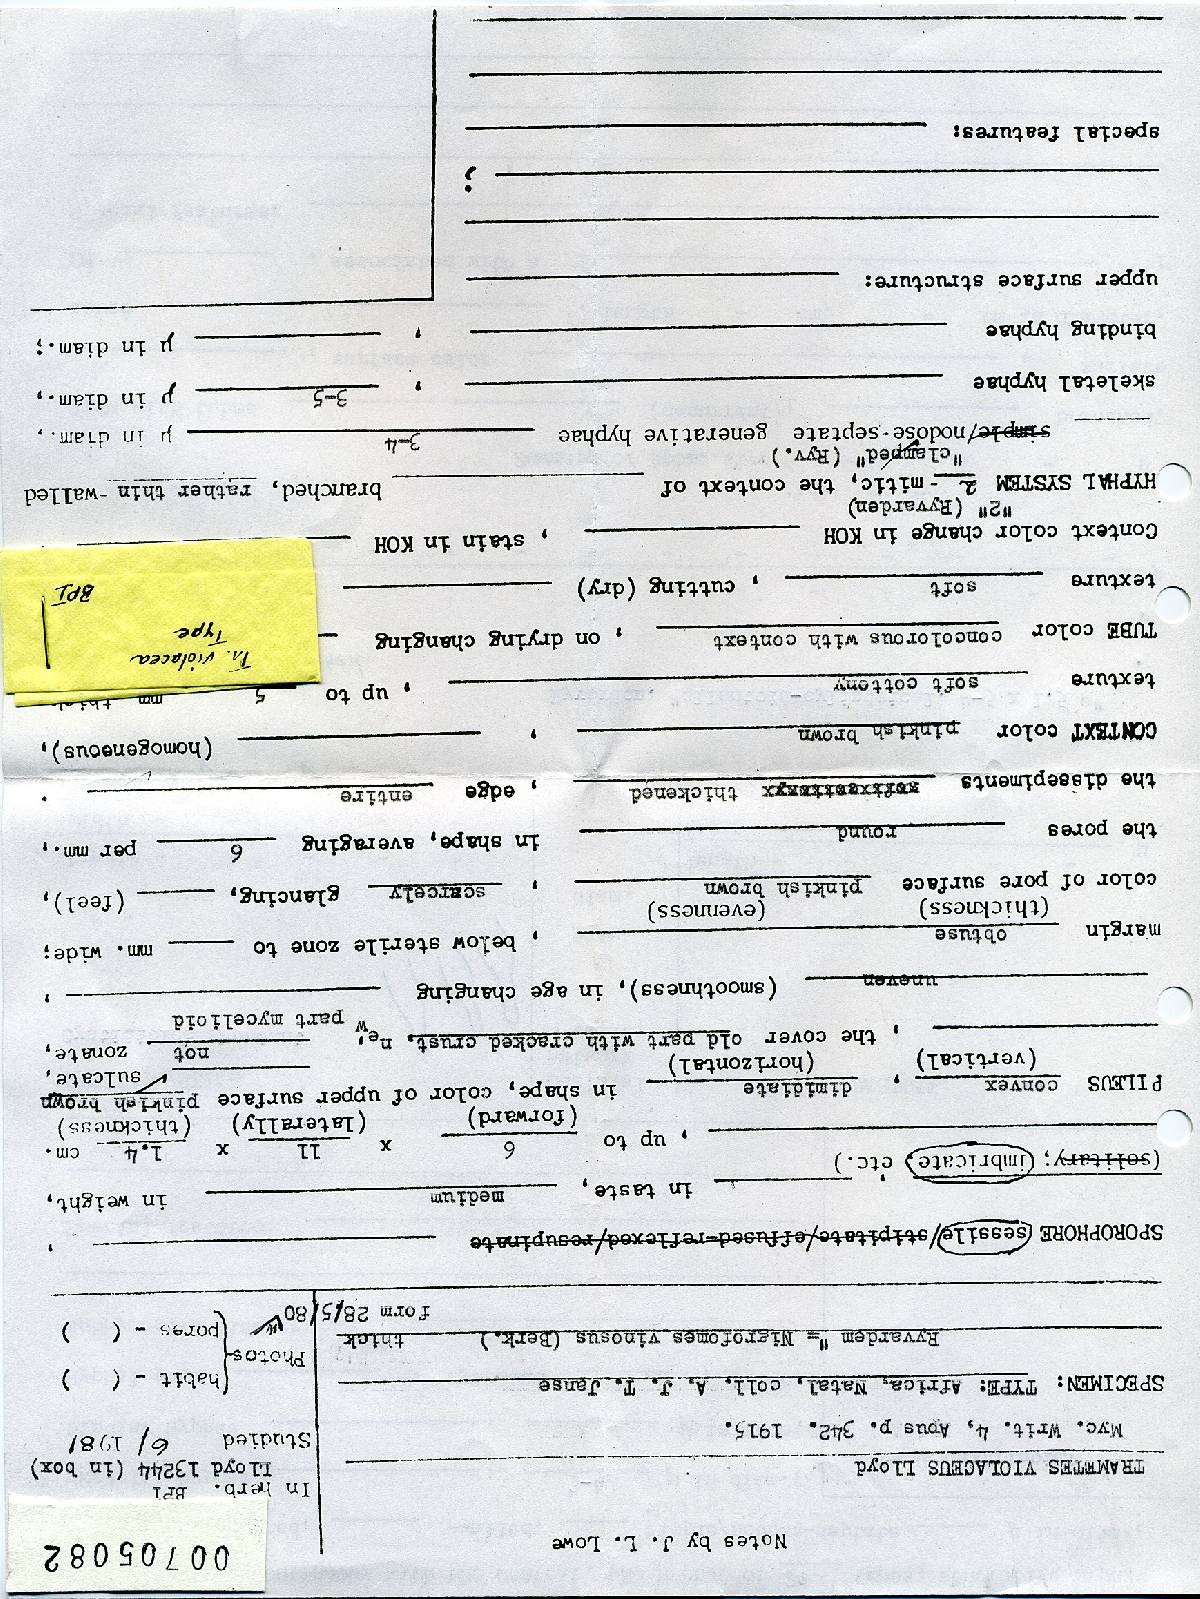 00705082
Notes by J. L. Lowe
TRAMETES VIOLACEUS Lloyd
In herb. BPI
Lloyd 13244 (in box)
Myc. Writ. 4, Apus p. 342. 1915.
Studied 6/ 1981
SPECIMEN: TYPE: Africa, Natal, coll. A. J. T. Janse
(habit - ( )
Photos
(pores - ( )
Ryvardem "= Nigrofomes vinosus (Berk.) thick
form 28/5/80
SPOROPHORE (sessile/stipitate/effused-reflexed/resupinate ,
medium in taste, in weight,
(solitary; imbricate, etc.)
, up to 6 x 11 x 1.4 cm.
(forward) (laterally) (thickness)
PILEUS convex , dimidiate in shape, color of upper surface pinkish brown
(vertical) (horizontal) sulcate,
, the cover old part with cracked crust, new, not zonate,
part mycelioid
uneven (smoothness), in age changing ,
margin obtuse , below sterile zone to mm. wide;
(thickness) (evenness)
color of pore surface pinkish brown , scarcely glancing, (feel),
the pores round in shape, averaging 6 per mm.,
the dissepiments thickened , edge entire .
CONTEXT color pinkish brown , (homogeneous),
texture soft cottony , up to 5 mm
TUBE color concolorous with context , on drying changing
Tr. violacea
Type
BPI
texture soft , cutting (dry)
Context color change in KOH , stain in KOH
"2" (Ryvarden)
HYPHAL SYSTEM 2 -mitic, the context of branched, rather thin -walled
"clamped" (Ryv.)
simple/nodose-septate generative hyphae 3-4 µ in diam.,
skeletal hyphae , 3-5 µ in diam.,
binding hyphae , µ in diam.;
upper surface structure:
;
special features: